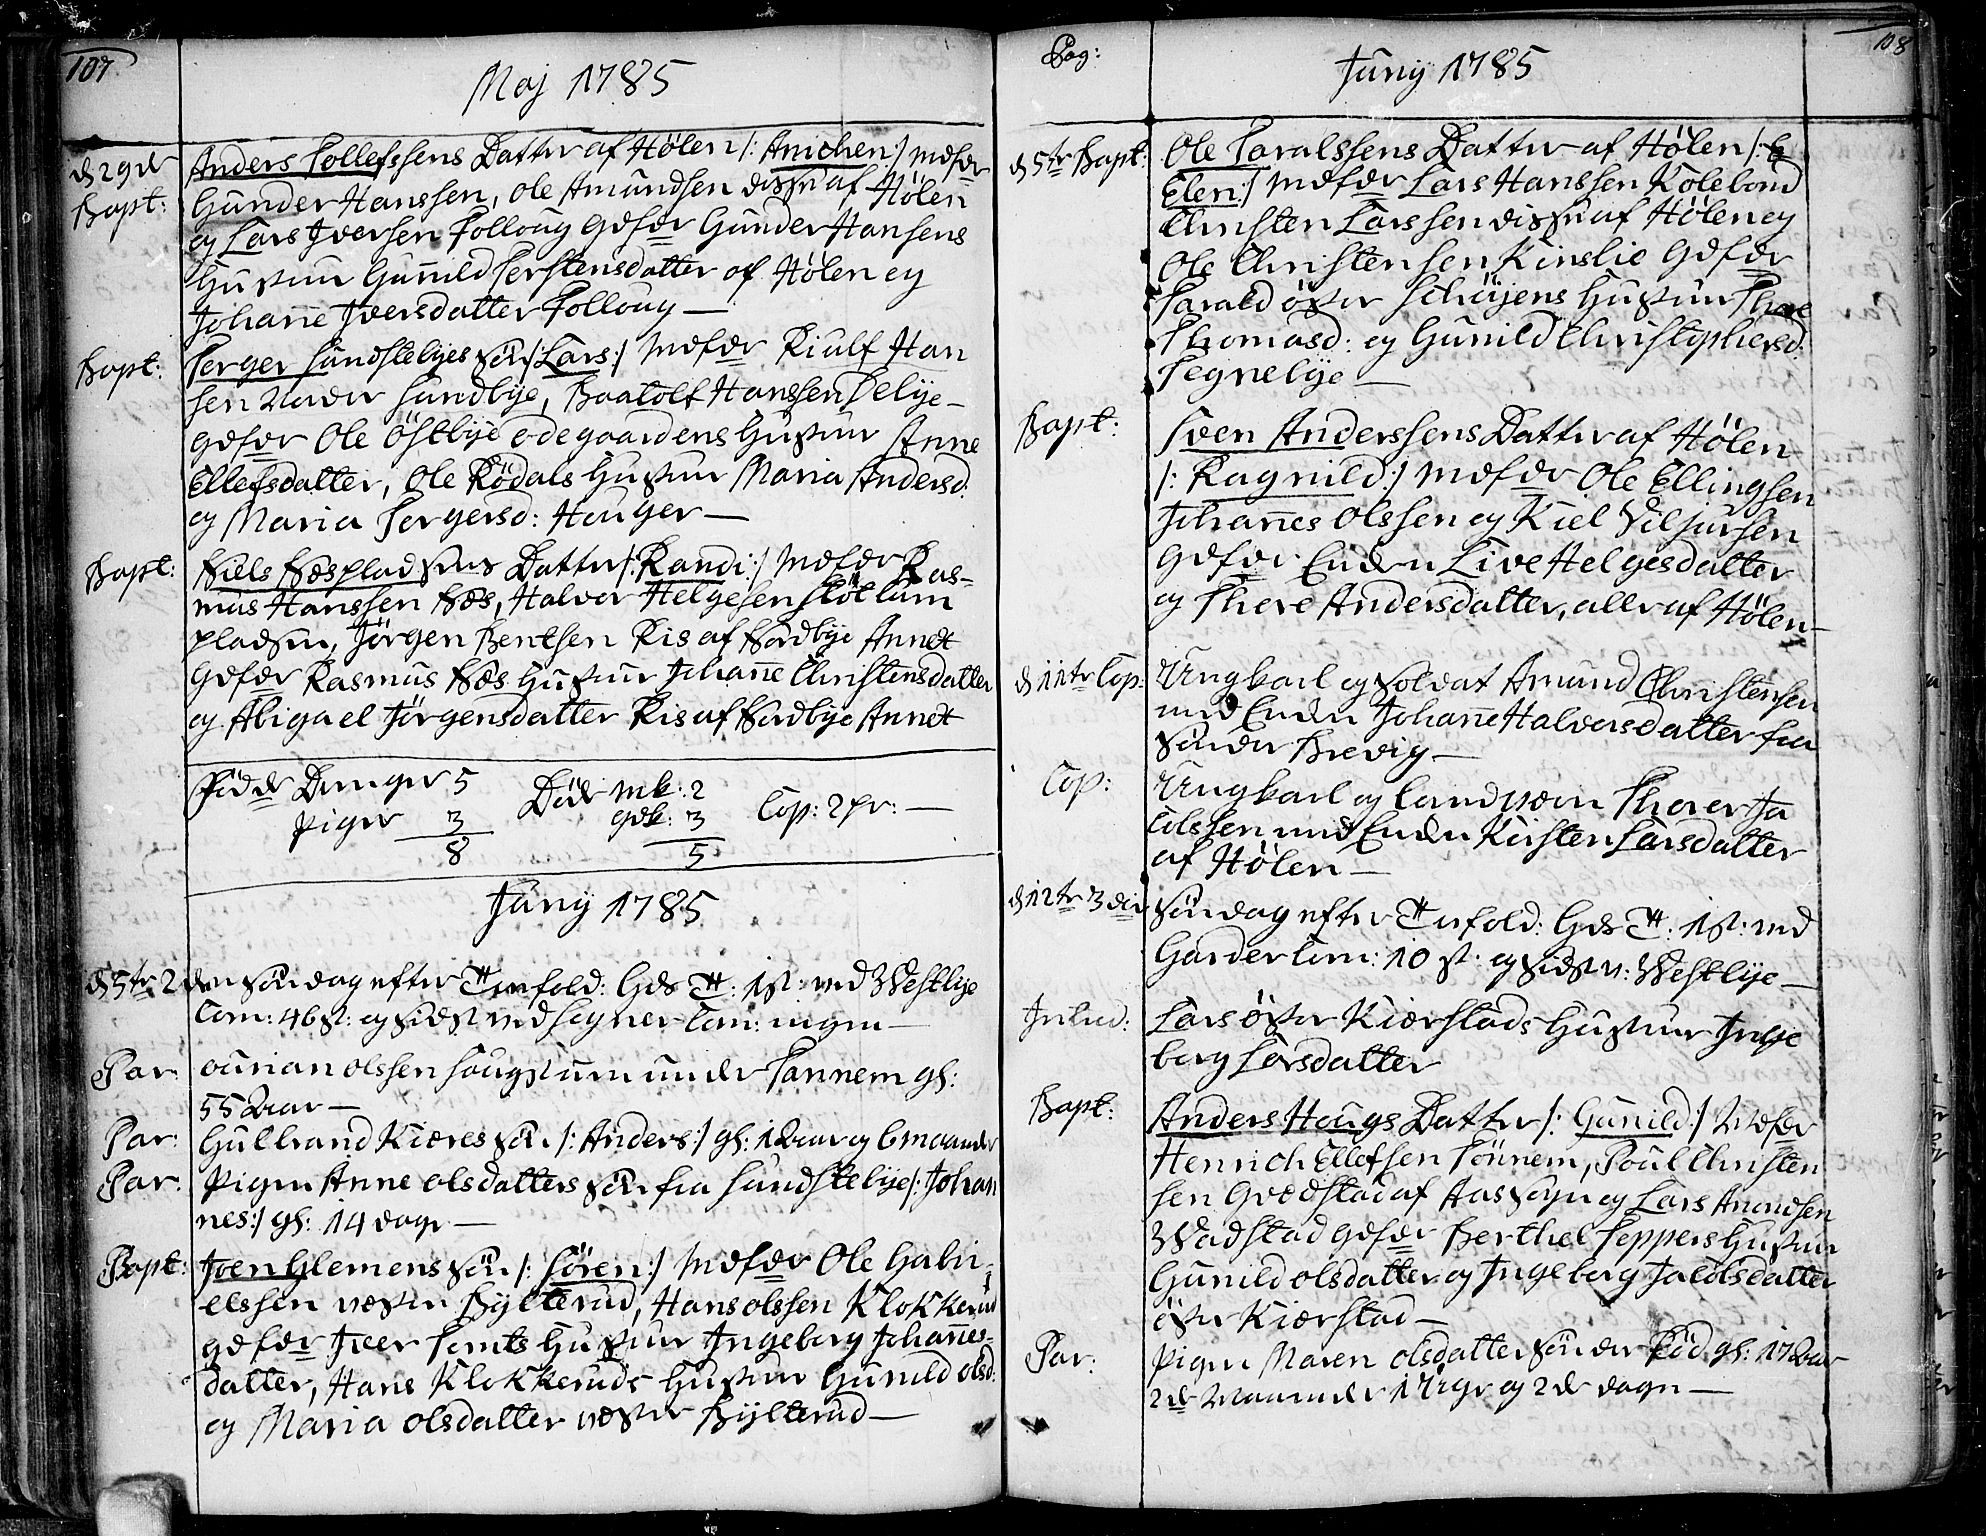 107.
Maj 1785
d 29de
Bapt:
Anders Tollefssens Datter af Hölen /: Anichen :/ Mdfdr
Gunder Hanssen, Ole Amundsen disse af Hölen
og Lars Iversen Folloug Qdfdr Gunder Hansens
Hustrue Gunild Terstensdatter af Hölen og
Johanne Iversdatter Folloug —
Bapt:
Terger Sundstebyes Sön /: Lars :/ Mdfdr Kiulf Han
sen Neder Sundbye, Baatolf Hanssen Schye
Qdfdr Ole Östbye ödegaardens Hustrue Anne
Ellefsdatter, Ole Rödals Hustrue Maria Andersd.
og Maria Torgersd: Houger —
Bapt:
Niels Næspladsens Datter /: Randi :/ Mdfdr Ras-
mus Hanssen Næs, Halvor Helgesen Slöttum
pladsen, Jörgen Bentsen Ris af Nordbye Annet
Qdfdr Rasmus Næs Hustrue Johanne Christensdatter
og Abigael Jörgensdatter Ris af Nordbye Annet
Födde Drenger 5
Piger 3
8
Döde mk: 2
qdk: 3
5
Cop: 2 pr: —
Juny 1785
d 5te 2den Söndag efter Trefold: Gds T: 1st: ved Westbye
Com: 46 st: og sidst ved Sogner Com: ingen —
Par:
ourian olssen Haugstuen under Tannem gl:
55 Aar —
Par:
Gulbrand Kiæres Sön /: Anders :/ gl: 1 Aar og 6 maaneder
Par:
Pigen Anne olsdatters Sön fra Sundstebye /: Johan
nes :/ gl: 14 dage —
Bapt:
Joen Glemens Sön /: Sören :/ Mdfdr Ole Gabri-
elssen vester Bylterud, Hans olssen Klokkerud
Qdfdr Iver Tomts Hustrue Ingeborg Johannes-
datter, Hans Klokkeruds Hustrue Gunild olsd:
og Maria olsdatter vester Bylterud —
Pag:
108
Juny 1785
d 5te Bapt:
Ole Taralssens Datter af Hölen /: E
Elen :/ Mdfdr Lars Hanssen Kolebond
Christen Larssen disse af Hölen og
Ole Christensen Kinslie Qdfdr
Tarald öster Schöyens Hustrue Thore
Thomasd: og Gunild Christophersd:
Tegnebye —
Bapt:
Sven Anderssens Datter af Hölen
/: Ragnild :/ Mdfdr Ole Ellingsen
Johannes Olssen og Kiel Siljursen
Qdfdr Enken Live Helgesdatter
og Thore Andersdatter, alle af Hölen —
d 11te Cop:
Ungkarl og Soldat Amund Christensen
med Enken Johanne Halvorsdatter fra
Sönder Brevig —
Cop:
Ungkarl og landværn Thorer Ja
cobssen med Enken Kirsten Larsdatter
af Hölen —
d 12te 3die
Söndag efter Trefold: Gds T: 1st: ved
Garder Com: 10 st. og sidst v: Westbye —
Introd:
Lars öster Kierstads Hustrue Inge
borg Larsdatter
Bapt:
Anders Hougs Datter /: Gunild :/ Mdfdr
Henrich Ellefsen Tönnem, Poul Christen
sen Grædstad af Aas Sogn og Lars Amundsen
Wadstad Qdfdr Berthel Teppers Hustrue
Gunild olsdatter og Ingeborg Jacobsdatter
öster Kierstad —
Par:
Pigen Maren olsdatter Sönder Röd gl: 17 Aar
2de Maaneder 1 Uge og 2de dage —